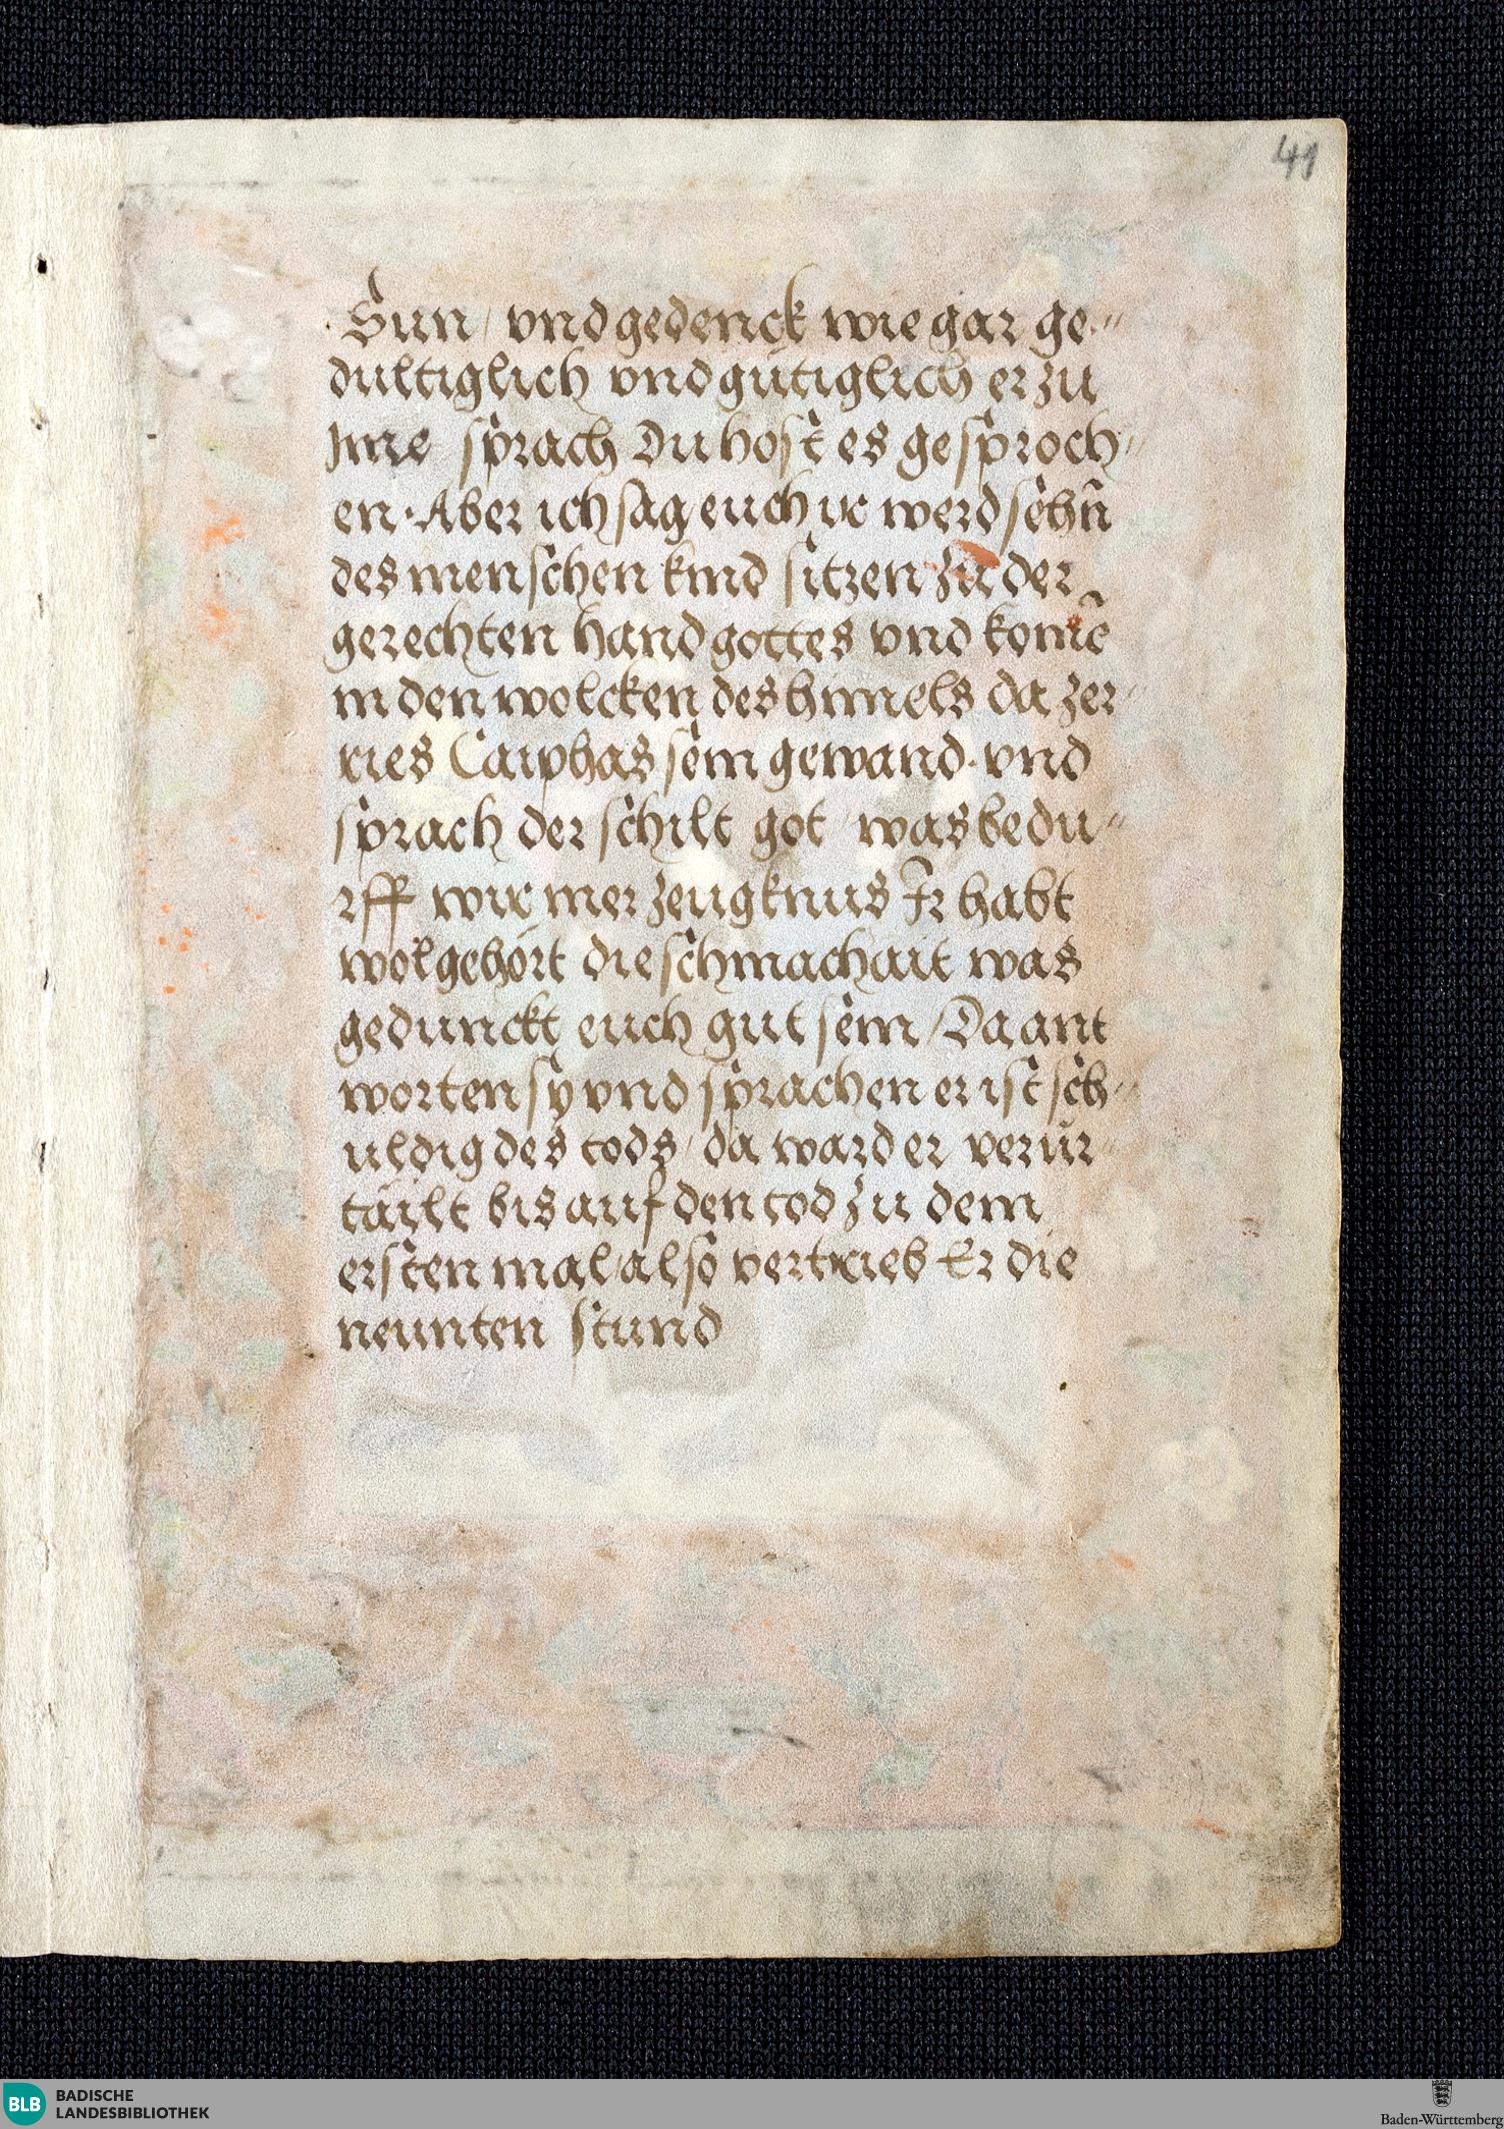 41
Sun / vnd gedenck wie gar ge-
dultiglich vnd gütiglich er zu
Jme sprach Du host es gesproch-
en · Aber ich sag euch ir werd sehn̄
des menschen kind sitzen zu der
gerechten hand gottes vnd kom̄e
in den wolcken des himels da zer-
ries Caiphas sein gewand · vnd
sprach der schilt got / was bedu-
rff wir mer zeugknus Ir habt
wol gehört die schmachait was
gedunckt euch gut sein / Da ant
worten sy vnd sprachen er ist sch-
uldig des tods / da ward er verur-
tailt bis auf den tod zu dem
ersten mal / also vertrieb Er die
neunten stund
BLB BADISCHE
LANDESBIBLIOTHEK
Baden-Württemberg